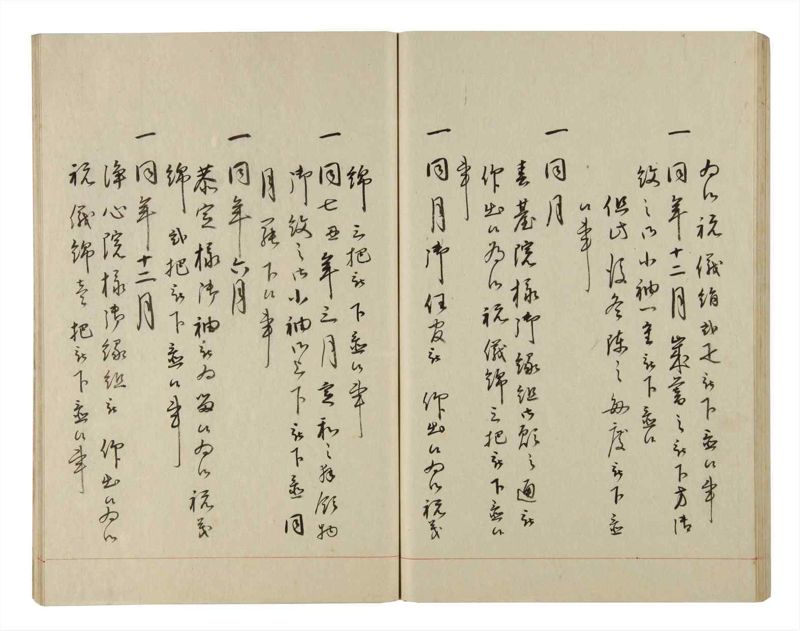 為御祝儀絹弐疋被下置候事
一同年十二月歳暮之被下方御
紋之御小袖一重被下置候
但此後冬陣之每度被下置
候事
一同月
春臺院様御縁組御願之通被
仰出候為御祝儀錦三把被下置候
事
一同月御任官被 仰出候為御祝茂
錦三把被下置候事
一同七丑年三月 御拝領物
御紋之御小袖御上下被下置同
月 下候事
一同年六月
恭定様御袖被為留候為御祝茂
錦弐把被下置候事
一同年十二月
浄心院様御縁組被 仰出候為御
祝儀錦壱把被下置候事